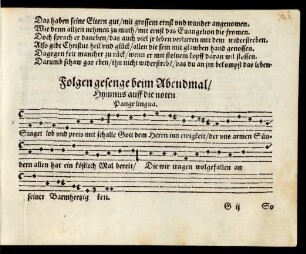 Das haben seine Eltern gut/ mit grossem ernst und wunder angenomen.
Wie denn allzeit nehmen zu muth/ mit ernst das Evangelion die fromen.
Doch sprach er daneben/ das auch viel ir leben verlieren mit dem widerstreben.
Also gibt Christus heil und glück/ allen die sein mit glawben hand genossen.
Dagegen felt mancher zu rück/ wenn er mit seinem kopff daran wil stossen.
Darumb schaw gar eben/ thu nicht widerstreben/ das du an jm bekompst das leben.
Folgen gesenge beim Abendmal/
Hymnus auff die noten
Pange lingua.
Singet lob und preis mit schalle Gott dem Herrn inn ewigkeit/ der uns armen Sün-
dern allen hat ein köstlich Mal bereit/ Die wir tragen wolgefallen an
seiner Barmhertzig keit.
G ij So